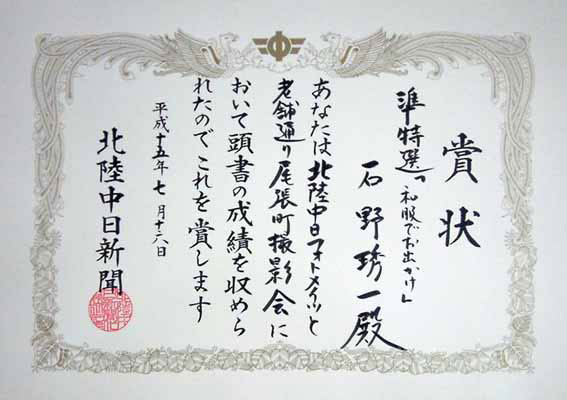 賞状
準特選「和服でお出かけ」
石野琇一殿
あなたは北陸中日フォトメイツと
老舗通り尾張町撮影会に
おいて頭書の成績を収めら
れたのでこれを賞します
平成十五年七月十六日
北陸中日新聞